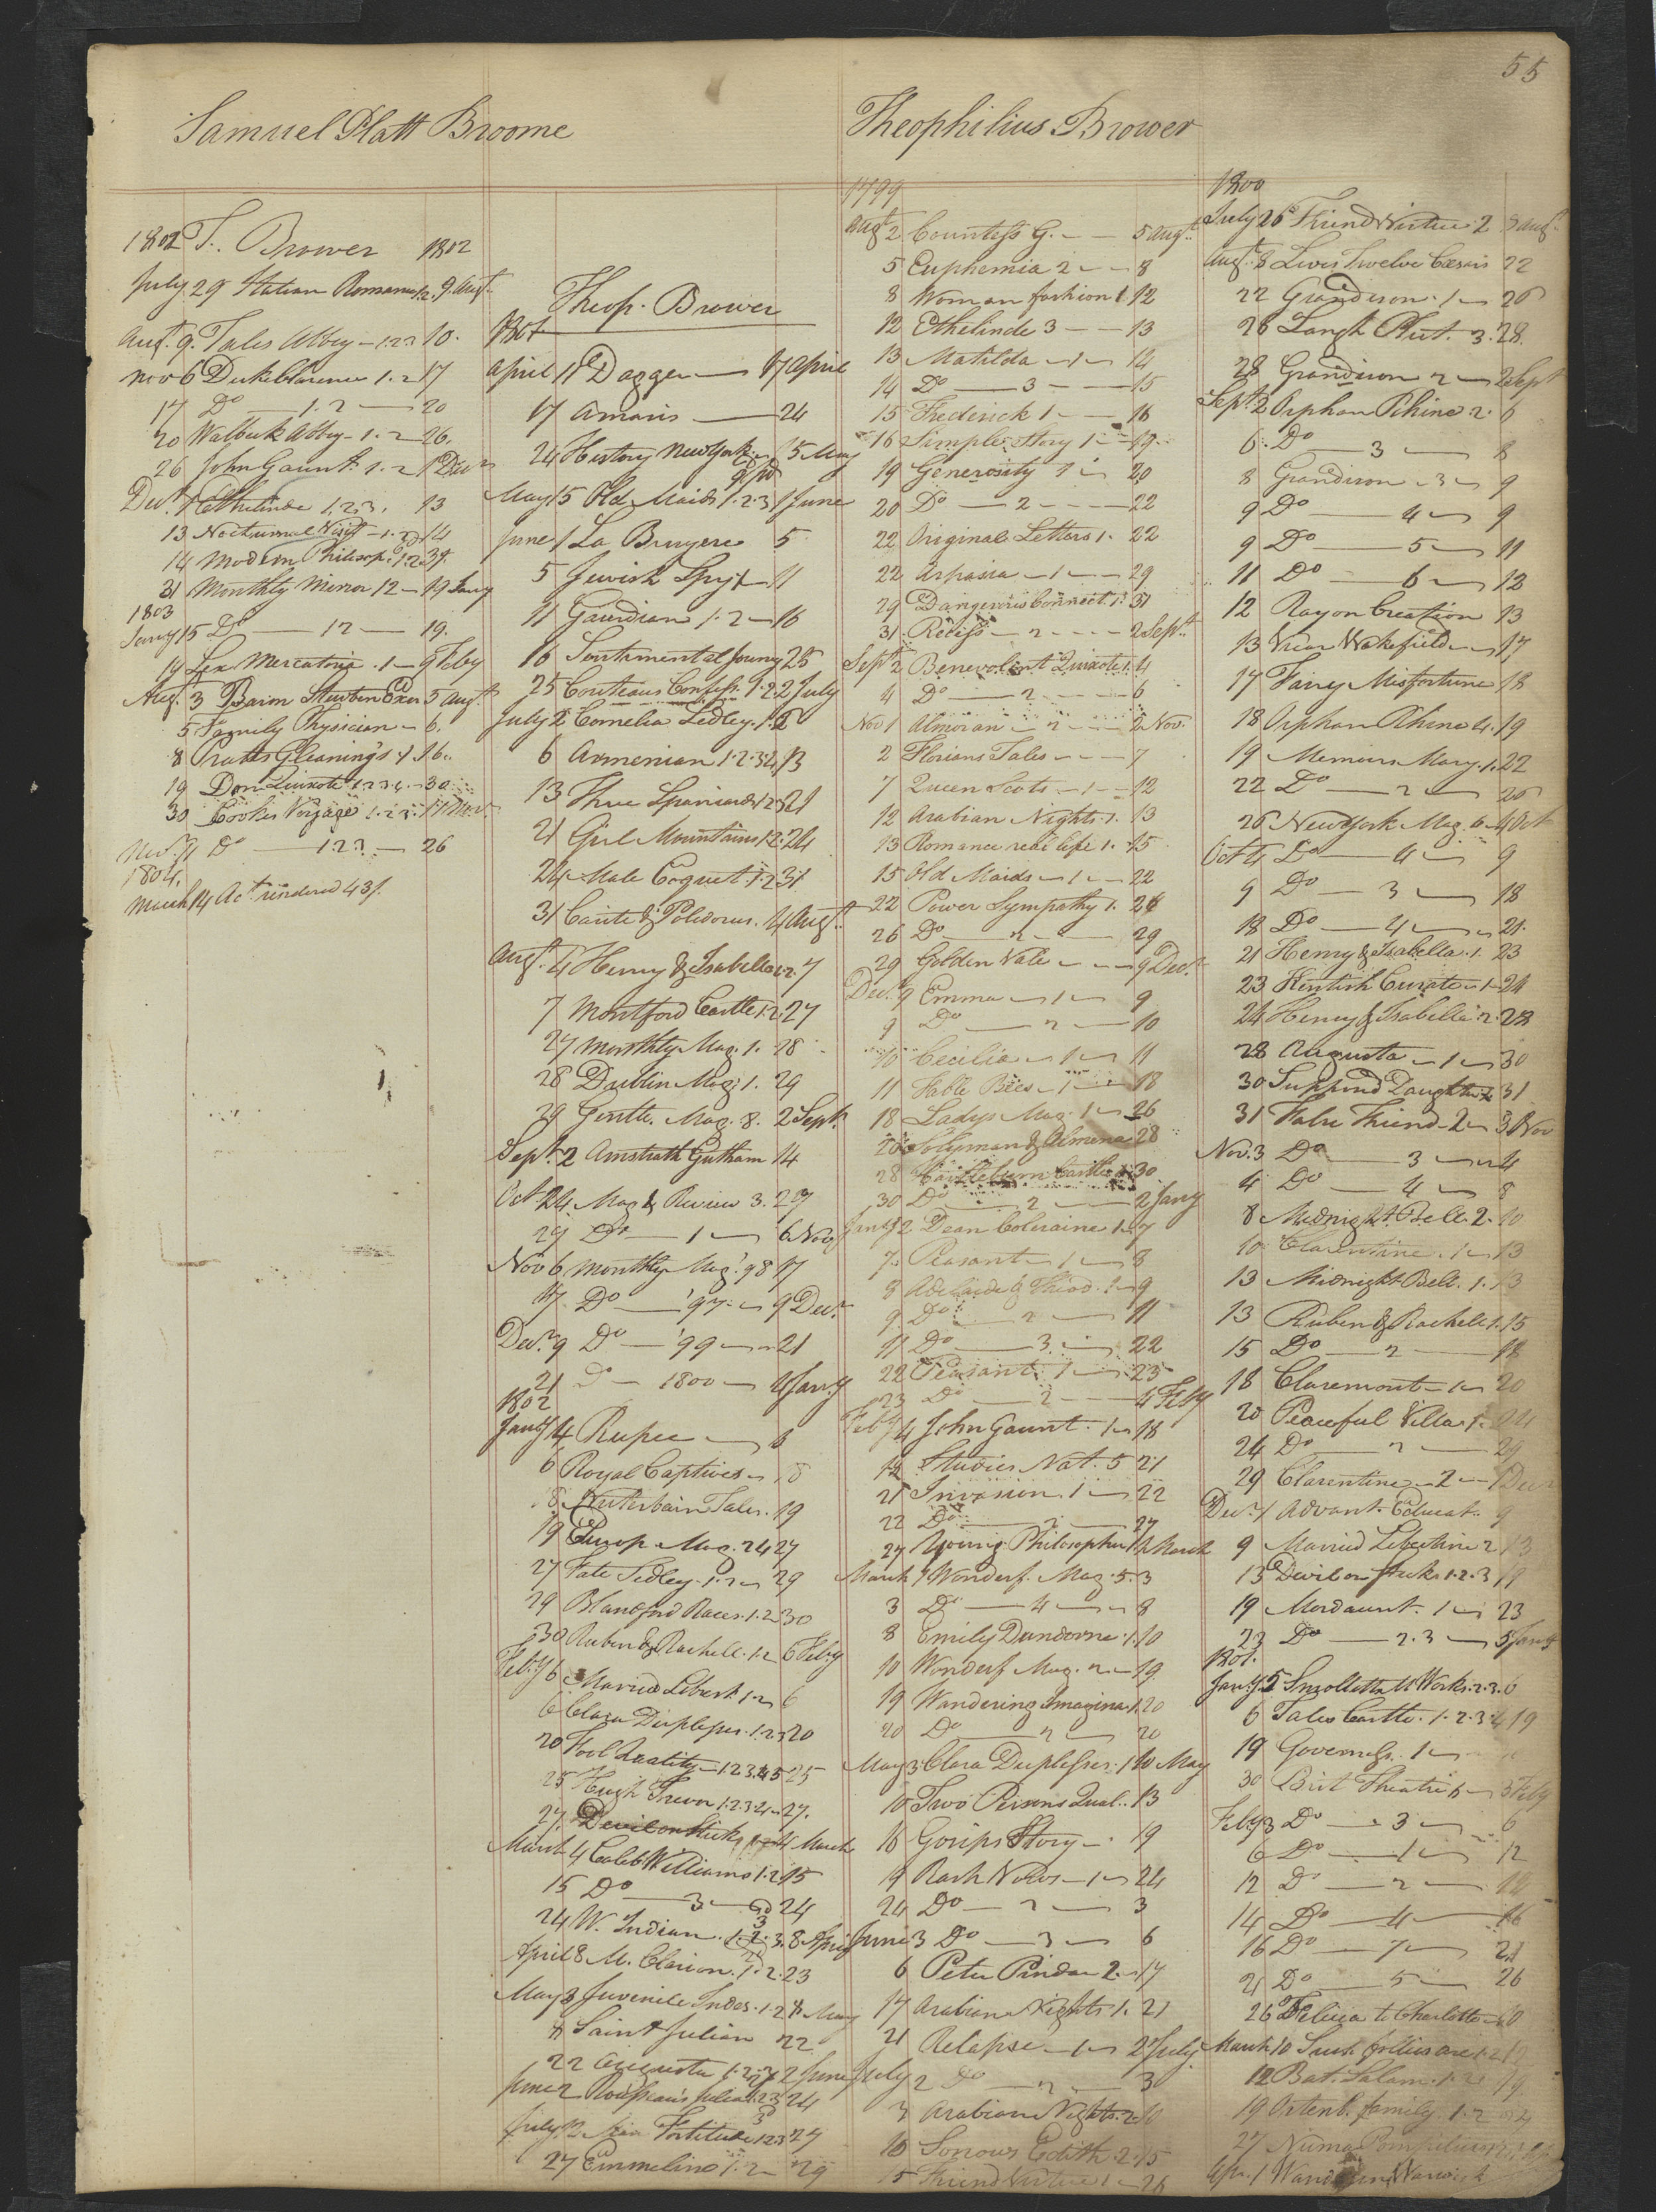 55
Samuel Platt Broome
1802 T. Brower 1802
July 29 Italian Romance 1.2. 9. Aust
Aust. 9. Tales Abbey - 1.2.3 10.
Nov 6 Duke Clarence 1.2 17
17 Do 1.2 20
20 Walbeck Abbey - 1.2 26.
26 John Gaunt. 1.2 1 Decr
Decr. 1 Ethelinde 1.2.3. 13
13 Nocturnal Visit - 1.2 14
14 Modern Philosop. 1.2 31.
31 Monthly Mirror 12 - 19 Jany
1803
Jany 15 Do 12 19.
19 Lex Mercatoria. 1 - 9 Feby
Aug. 3 Baron Steuben Exer 5 Augt
5 Family Physician - 6.
8 Pratts Gleanings 1. 16.
19 Don Quixote 1.2.3.4. - 30
30 Cooks Voyage 1.2.3. 11 Nov.
Nov. 11 Do 1.2.3 26
1804.
March 14 Act rendered 43/.
Theop. Brower
1801
April 11 Dagger 17 April
17 Amaris 24
24 History New York 15 May
May 15 Old Maids 1.2.3 1 June
June 1 La Bruyere 5
5 Jewish Spy 1 11
11 Gaurdian 1.2 16
16 Sentimental Journy 25
25 Couteaus Confess. 1.2. 2 July
July 2 Cornelia Sedley. 1.2 6
6 Armenian 1.2.3.4 13
13 Three Spaniards 1.2 21
21 Girl Mountains 1.2. 24
24 Male Coquet. 1.2 31
31 Carite & Polidorus. 4 Augt.
Augt. 4 Henry & Isabella 1.2. 7
7 Montford Castle 1.2. 27
27 Monthly Mag. 1. 28
28 Dublin Mag. 1. 29
29 Gentle. Mag. 8. 2 Sept.
Sept. 2 Amstrath Gutham 14
Oct 24. Mag & Review 3. 27
27 Do 1 6 Nov
Nov 6 Monthly Mag. '98 17
17 Do '97 9 Decr
Decr. 9 Do '99 21
21 Do 1800 4 Jany
1802
Jany 4 Rupee 6
6 Royal Captives 18
18 Winterbourn Tales. 19
19 Europ. Mag. 24 27
27 Fate Sedley. 1.2 29
29 Blandford Races. 1.2 30
30 Ruben & Rachell. 1.2 6 Feby
Feby 6 Married Libert. 1.2 6
6 Clara Duplesses. 1.2 20
20 Fool Quality - 1.2.3.4.5 25
25 Hugh Trevor 1.2.3.4 27.
27. Devil on Sticks 1.2 4 March
March 4 Caleb Williams 1.2 15
15 Do 3 24
24 W. Indian. 1.2.3. 8 April
April 8 M. Clarion. 1.2. 23
May 3 Juvenile Indes. 1.2 8 May
8 Saint Julian 22
22 Augusta 1.2.3 2 June
June 2 1.2.3 24
July 12 Fortitude 1.2.3 27
27 Emmeline 1.2 29
Theophilius Brower
1799
Augt 2 Countess G. 5 Augt.
5 Euphemia 2 8
8 Woman fashion 1 12
12 Ethelinde 3 13
13 Matilda 1 14
14 Do 3 15
15 Frederick 1 16
16 Simple Story 1 19
19 Generosity 1 20
20 Do 2 22
22 Original Letters 1. 22
22 Aspasia 1 29
29 Dangerous Connect. 1. 31
31. Recess 2 2 Sept.
Sept 2 Benevolent Quixote 1. 4
4 Do 2 6
Nov 1 Almoran 2 2 Nov.
2 Florians Tales 7
7 Queen Scots 1 12
12 Arabian Nights. 1. 13
13 Romance real life 1. 15
15 Old Maids 1 22
22 Power Sympathy 1. 26
26 Do 2 29
29 Golden Vale 9 Decr
Decr. 9 Emma 1 9
9 Do 2 10
10 Cecilia 1 11
11 Fable Bees 1 18
18 Ladys Mag. 1 26
26 Solyman & Almena 28
28 Castle 1 30
30 Do 2 2 Jany
Jany 2 Dean Coleraine 1. 7
7. Peasant 1 8
8 Adelaide & Theod. 1 9
9. Do 2 11
11 Do 3 22
22 Peasant 1 23
23 Do 2 4 Feby
Feby 4 John Gaunt. 1 18
18 Studies Nat. 5 21
21 Invasion 1 22
22 Do 2 27
27 Young Philosopher 1 1 March
March 1 Wonderf. Mag. 5. 3
3 Do 4 8
8 Emily Dundorne. 1. 10
10 Wonderf. Mag. 2. 19
19 Wandering Imagina. 1. 20
20 Do 2 20
May 3 Clara Duplesses. 1 10 May
10 Two Persons Qual.. 13
16 Gosips Story 19
19 Rash Vows 1 24
24 Do 2 3
June 3 Do 3 6
6 Peter Pindar 2. 17
17 Arabian Nights 1. 21
21 Relapse 1 2 July
July 2 Do 2 3
3 Arabian Nights. 2 10
10 Sorrows Edith. 2. 15
15 Friend Virtue 1 26
1800
July 26 Friend Virtue 2 8 Augt.
Augt. 8 Lives Twelve Cæsars 22
22 Grandison. 1 26
26 Langh. Plut. 3. 28.
28 Grandison 2 2 Sept
Sept. 2 Orphan Rhine 2. 6
6. Do 3 8
8 Grandison 3 9
9 Do 4 9
9 Do 5 11
11 Do 6 12
12 Ray on Creation 13
13 Vicar Wakefield 17
17 Fairy Misfortune 18
18 Orphan Rhine 4. 19
19 Memoirs Mary. 1. 22
22 Do 2 26
26 New York Mag. 6 4 Oct
Oct 4 Do 4 9
9 Do 3 18
18 Do 4 21.
21 Henry & Isabella. 1. 23
23 Kentish Curate 1 24
24 Henry & Isabella 2. 28
28 Augusta 1 30
30 Supposed Daughter 2 31
31 False Friend 2 3 Nov
Nov. 3 Do 3 4
4 Do 4 8
8 Midnight Bell. 2. 10
10 Clarentine. 1 13
13 Midnight Bell. 1. 13
13 Ruben & Rachell 1. 15
15 Do 2 18
18 Claremont 1 20
20 Peaceful Villa 1. 24
24 Do 2 29
29 Clarentine 2 1 Decr
Decr. 1 Advant. Educat. 9
9 Married Libertine 2 13
13 Devil on Sticks 1.2.3 19
19 Mordaunt. 1 23
23 Do 2.3 5 Jany
1801.
Jany. 5 Smolletts M. Works. 2.3. 6
6 Tales Castle. 1.2.3.4 19
19 Governess. 1
30 Brit Theatre 6 3 Feby
Feby 3 Do 3 6
6 Do 1 12
12 Do 2 14
14 Do 4 16
16 Do 7 21
21 Do 5 26
26 Felicia to Charlotte 10
March 10 Such follies are 1.2 12
12 Bat. Salam. 1.2 19
19 Ortenb. family. 1.2 24
27 Numa Pompilius
Apr. 1 Warwick